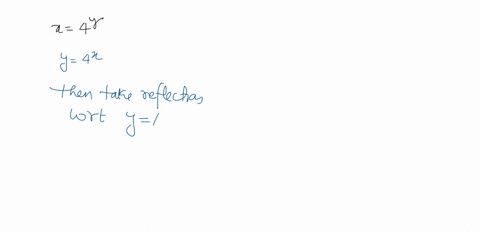 x = 4^y
y = 4^x
then take reflection
wrt y = /